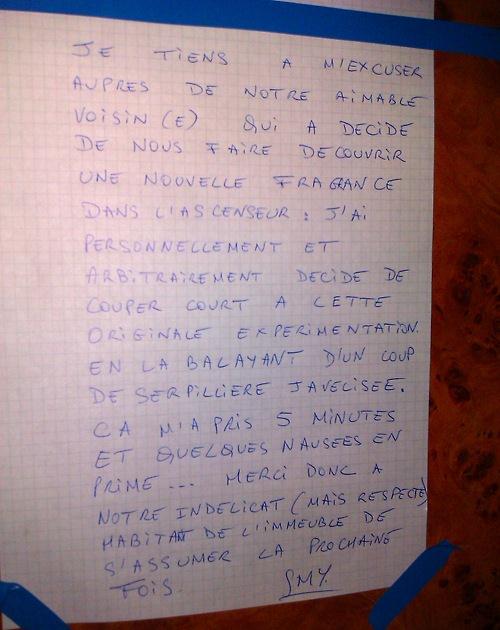 JE TIENS A M'EXCUSER
AUPRES DE NOTRE AIMABLE
VOISIN(E) QUI A DECIDE
DE NOUS FAIRE DECOUVRIR
UNE NOUVELLE FRAGRANCE
DANS L'ASCENSEUR : J'AI
PERSONNELLEMENT ET
ARBITRAIREMENT DECIDE DE
COUPER COURT A CETTE
ORIGINALE EXPERIMENTATION
EN LA BALAYANT D'UN COUP
DE SERPILLIERE JAVELISEE.
CA M'A PRIS 5 MINUTES
ET QUELQUES NAUSEES EN
PRIME... MERCI DONC A
NOTRE INDELICAT (MAIS RESPECTE)
HABITANT DE L'IMMEUBLE DE
S'ASSUMER LA PROCHAINE
FOIS.